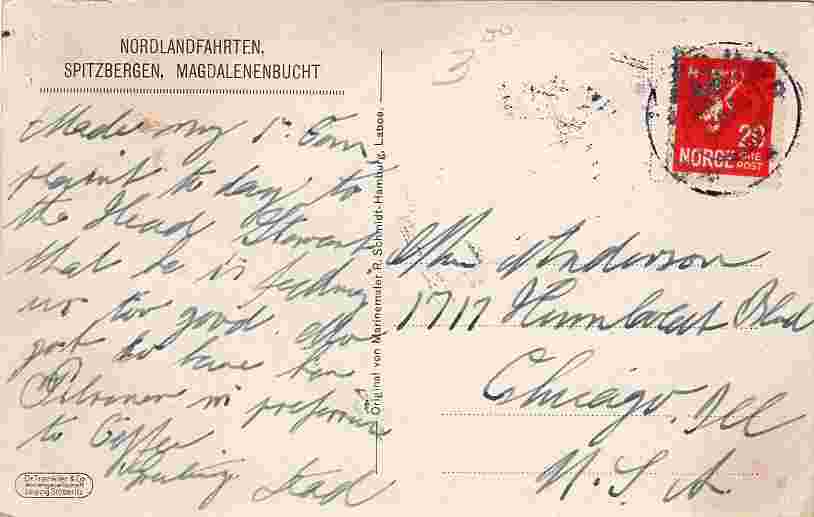 NORDLANDFAHRTEN,
SPITZBERGEN, MAGDALENENBUCHT
Made my 1st Com
plaint to day to
the Head Steward
that he is feeding
us too good. Also
got to have
Pilsener in preference
to Coffee
Greetings Dad
Original von Marinemaler R. Schmidt-Hamburg, Laboe.
3
20
NORGE ØRE
POST
Anderson
1717 Humboldt Blvd
Chicago, Ill
U. S. A.
Dr. Trenkler & Co.
Aktiengesellschaft
Leipzig-Stötteritz